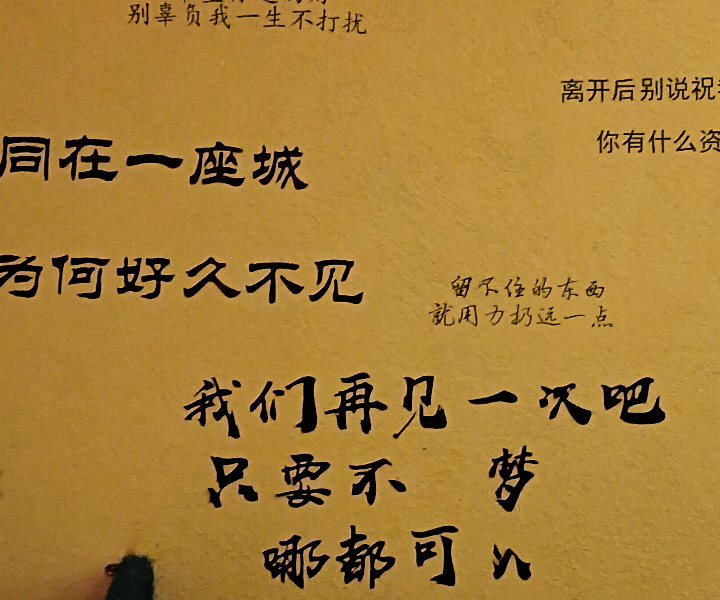 别辜负我一生不打扰
离开后别说祝
你有什么资
同在一座城
为何好久不见
留不住的东西
就用力扔远一点
我们再见一次吧
只要不 梦
哪都可